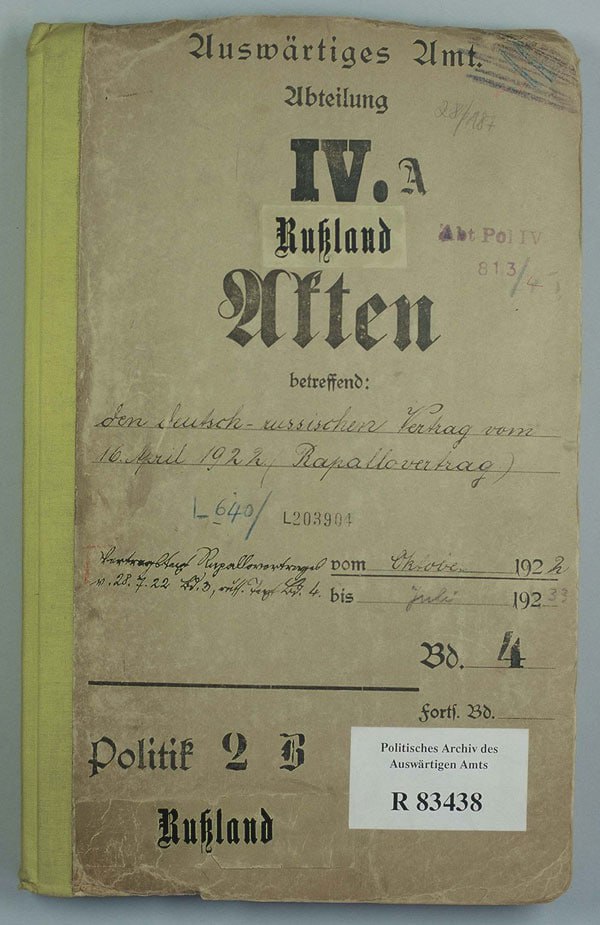 Auswärtiges Amt.
Abteilung
28/187
IV. A
Rußland
Abt Pol IV
813/4
Akten
betreffend:
den deutsch-russischen Vertrag vom
16. April 1922 (Rapallovertrag)
L 640/ L203904
Rapallovertrages
v. 28.7.22 Bd. 3, russ. Text Bd. 4.
vom Oktober 1922
bis Juli 192
Bd. 4
Forts. Bd.
Politik 2 B
Rußland
Politisches Archiv des
Auswärtigen Amts
R 83438